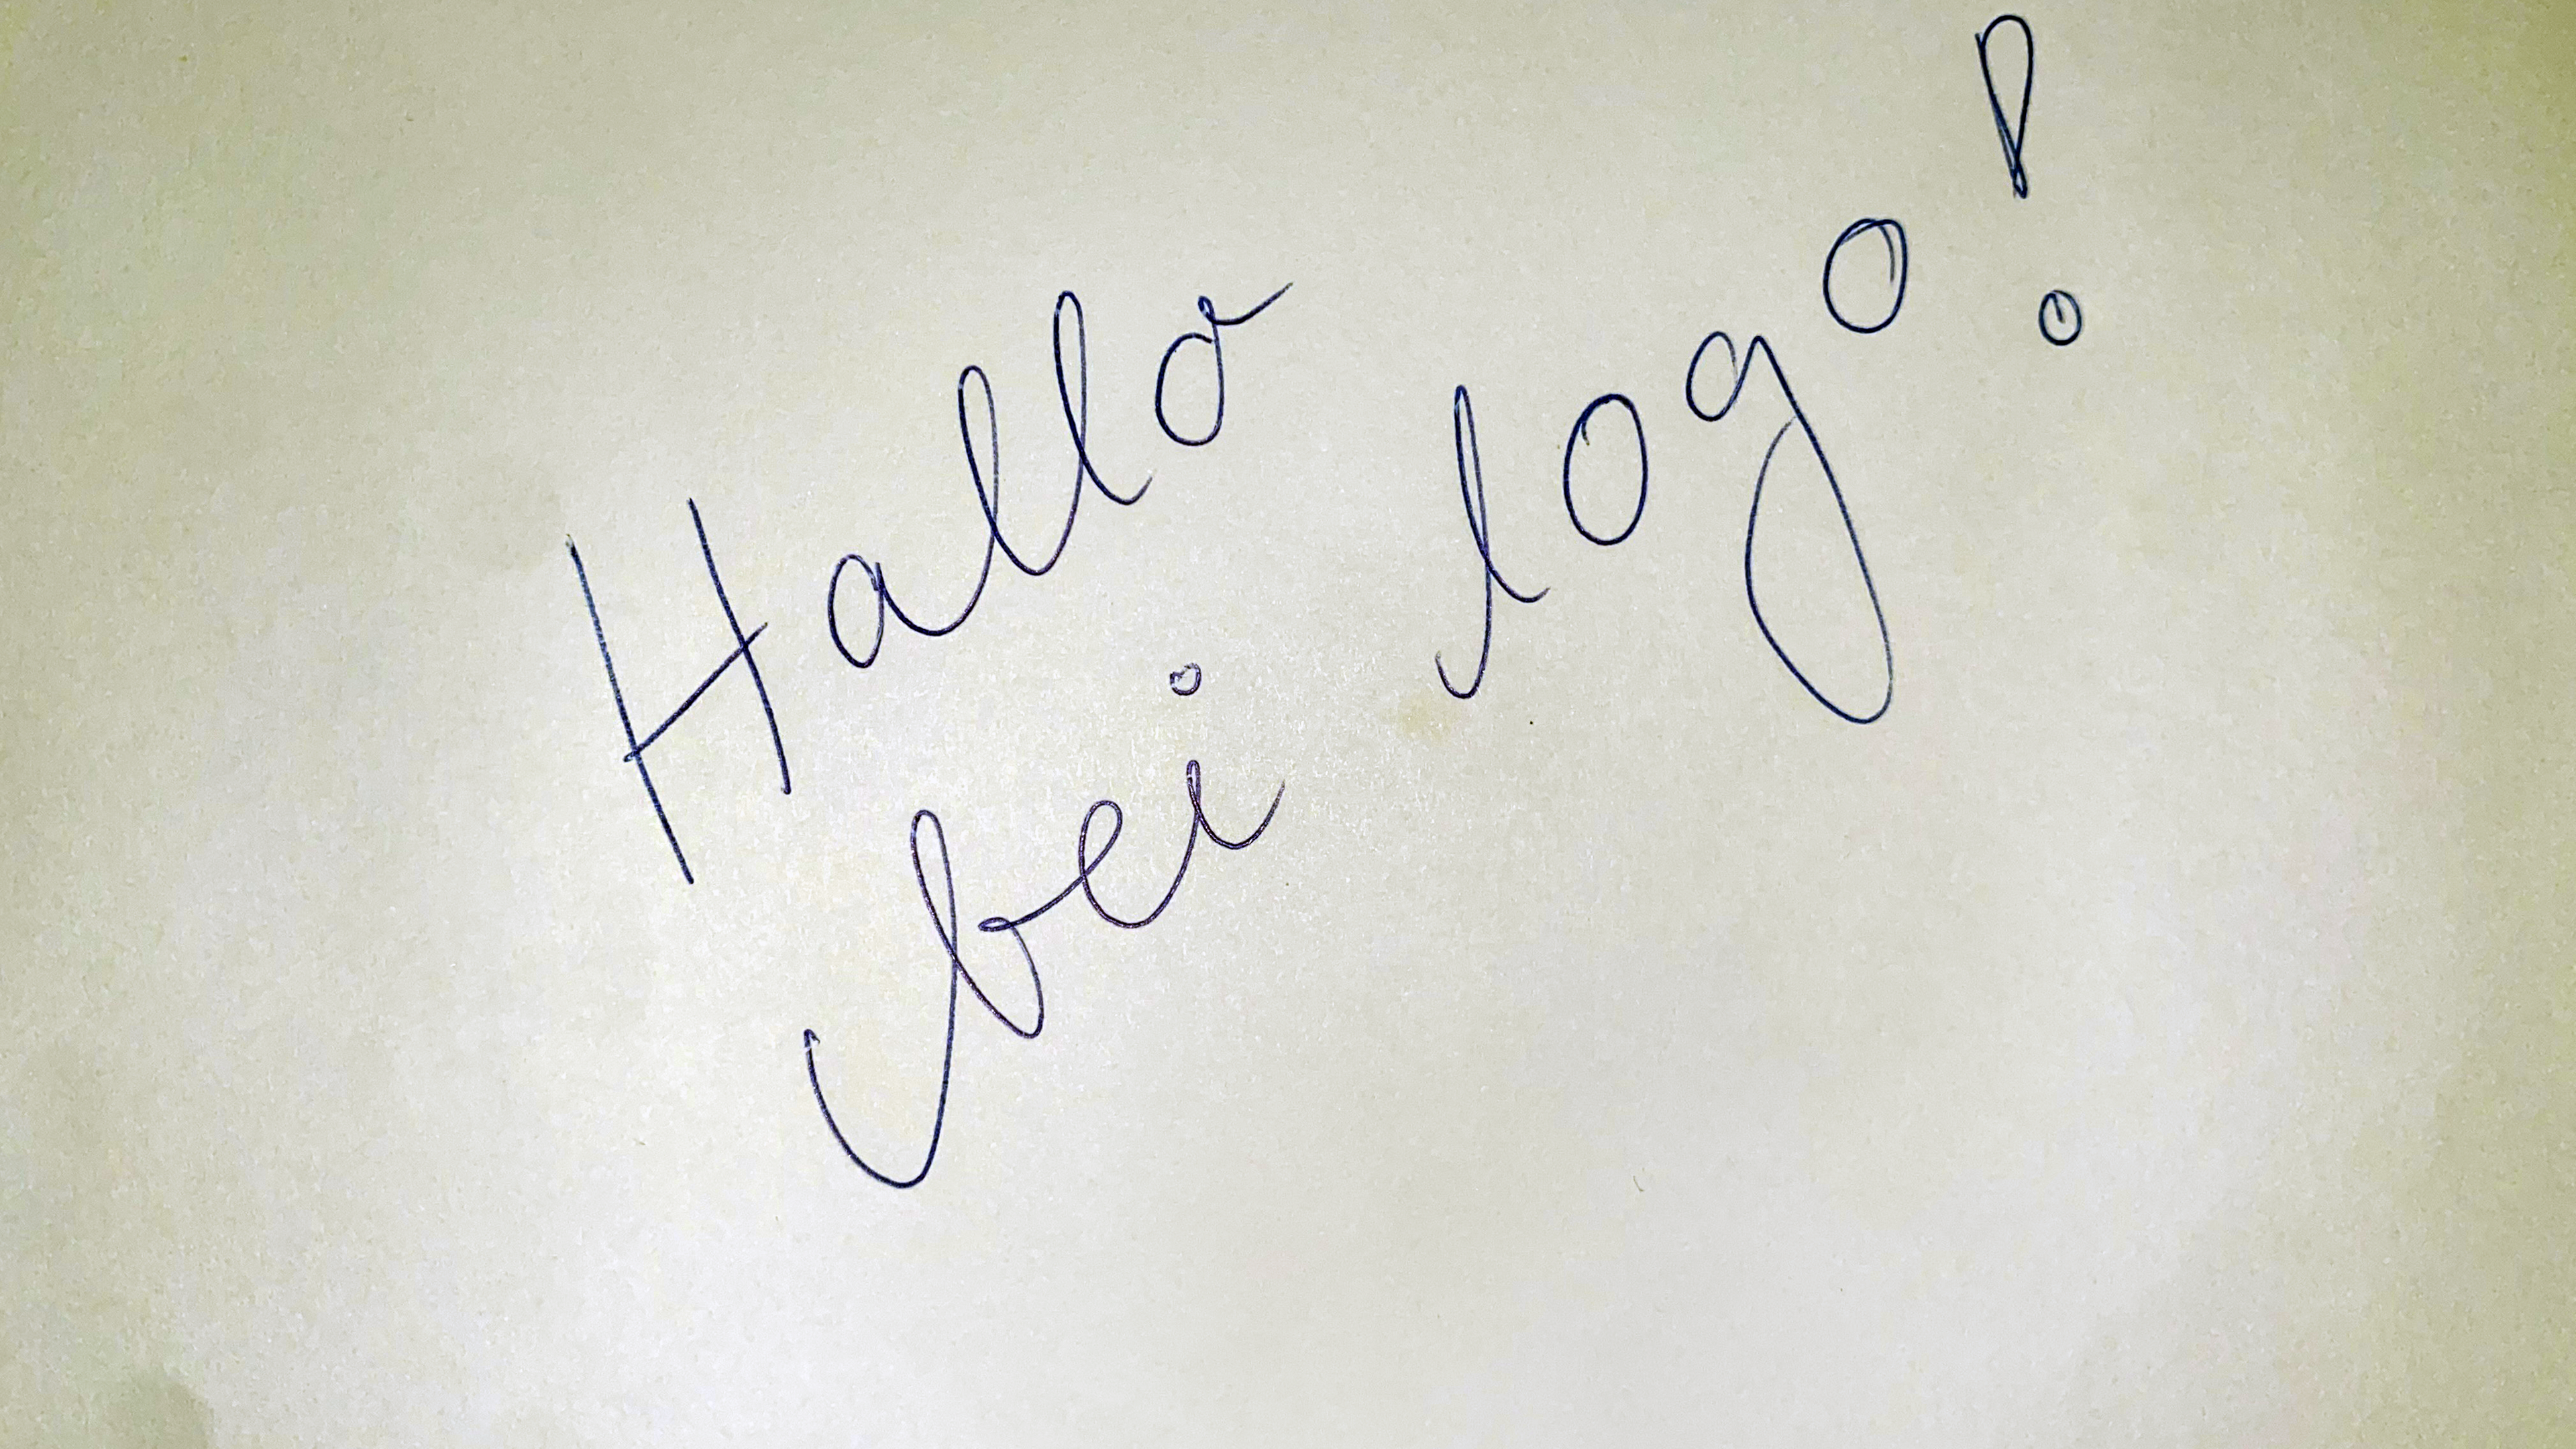 Hallo
bei logo!